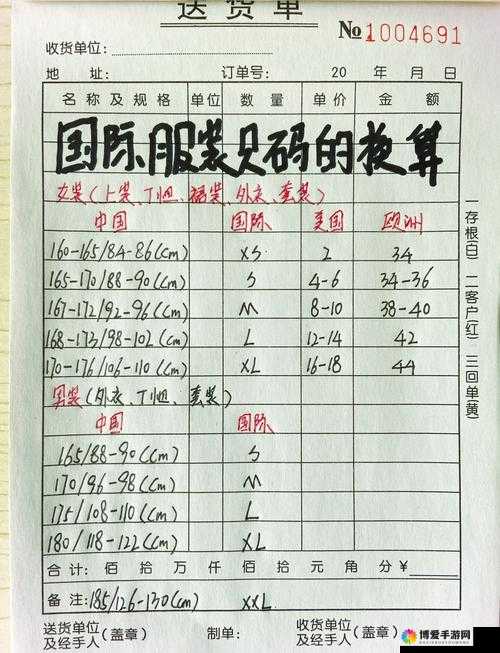 送货单
收货单位: №1004691
地 址: 订单号: 20 年 月 日
名称及规格 单位 数量 单价 金额
国际服装尺码的换算
女装(上装、T恤、裙装、外衣、套装)
中国 国际 美国 欧洲
160-165/84-86(cm) XS 2 34
165-170/88-90(cm) S 4-6 34-36
167-172/92-96(cm) M 8-10 38-40
168-173/98-102(cm) L 12-14 42
170-176/106-110(cm) XL 16-18 44
男装(外衣、T恤、套装)
中国 国际
165/88-90(cm) S
170/96-98(cm) M
175/108-110(cm) L
180/118-122(cm) XL
合计: 佰 拾 万 仟 佰 拾 元 角 分 ¥
备注: 185/126-130(cm) XXL
送货单位及经手人(盖章) 制单: 收货单位及经手人(盖章)
一存根(白) 二客户(红) 三回单(黄)
博爱手游网